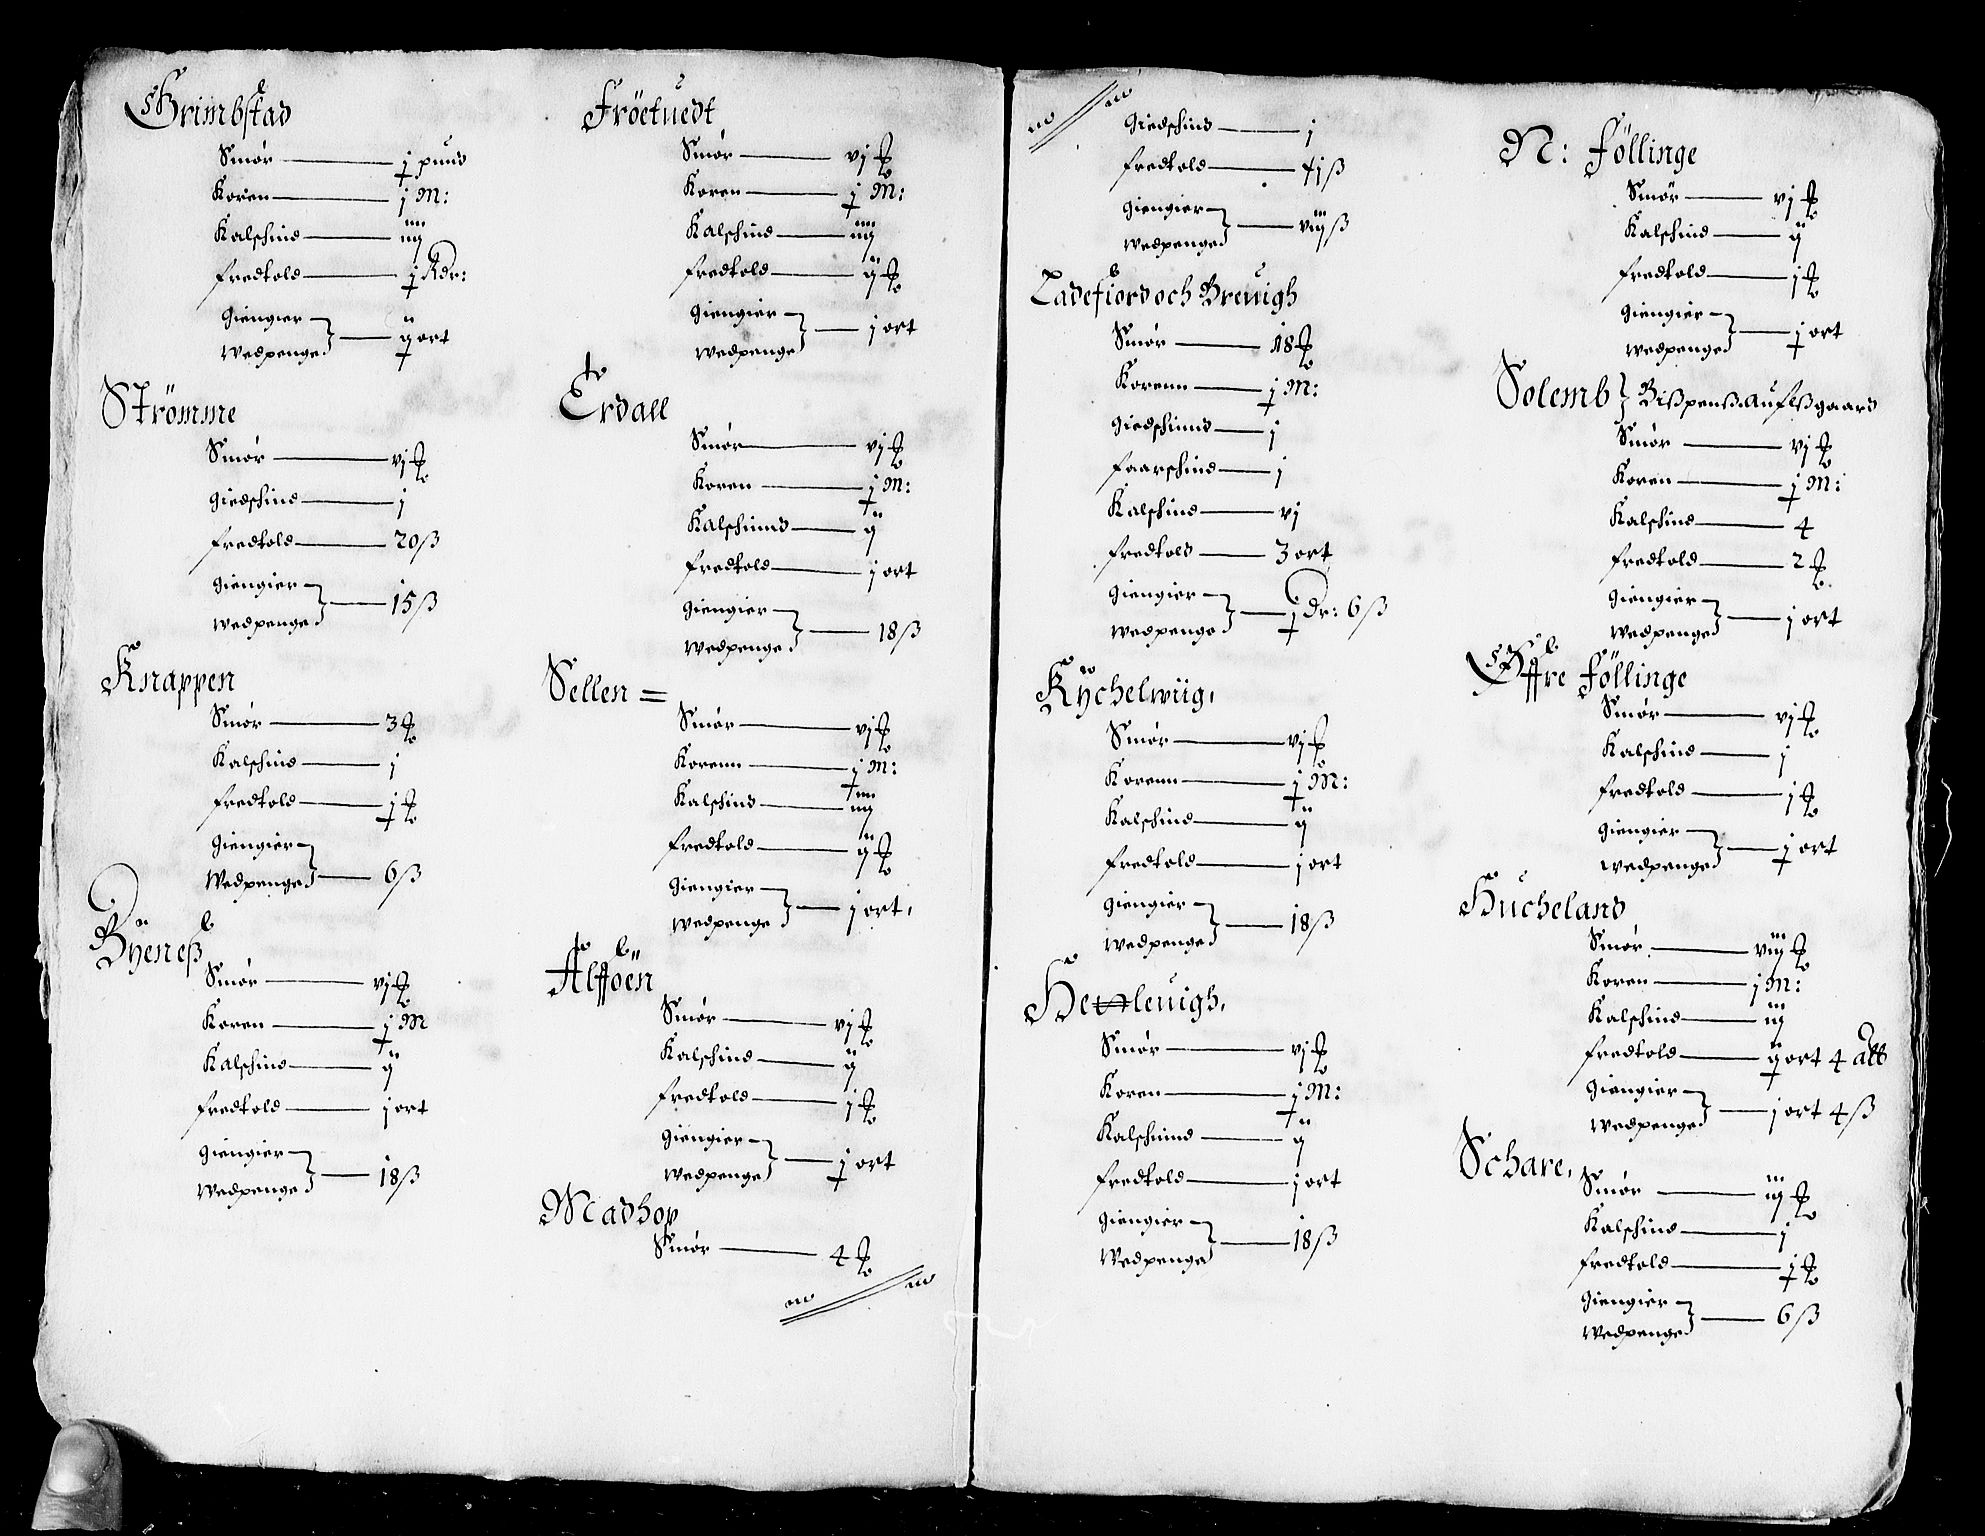 Grimbstad
Smør — j pund
Koren — j M:
Kalschind — iiij
fredtold — j Rdr:
giengier
wedpenge — ij ort
Strömme
Smør — vj ℔
giedschind — j
fredtold — 20 ß
giengier
wedpenge — 15 ß
Knappen
Smør — 3 ℔
Kalschind — j
fredtold — j ℔
giengier
Wedpenge — 6 ß
Bÿeneß
Smør — vj ℔
Koren — j M
Kalschind — ij
fredtold — j ort
giengier
wedpenge — 18 ß
Fröetuedt
Smør — vj ℔
Koren — j M:
Kalschind — iiij
fredtold — ij ℔
giengier
wedpenge — j ort
Erdall
Smør — vj ℔
Koren — j M:
Kalschind — ij
fredtold — j ort
giengier
wedpenge — 18 ß
Sellen =
Smør — vj ℔
Korenn — j M:
Kalschind — iiij
fredtold — ij ℔
giengier
wedpenge — j ort,
Alffoën
Smør — vj ℔
Kalschind — ij
fredtold — j ℔
giengier
wedpenge — j ort
Madhop
Smør — 4 ℔
giedschind — j
fredtold —
giengier
wedpenge — viij ß
Ladefiord och Breuigh
Smør — 18 ℔
Korenn — j M:
giedschind — j
faarschind — j
Kalschind — vj
fredtold — 3 ort
giengier
wedpenge — j Dr: 6 ß
Kÿchelwiig,
Smør — vj ℔
Korenn — j M:
Kalschind — ij
fredtold — j ort
giengier
wedpenge — 18 ß
Heleuigh,
Smør — vj ℔
Koren — j M:
Kalschind — ij
fredtold — j ort
giengier
Wedpenge — 18 ß
N: Föllinge
Smør — vj ℔
Kalschind — ij
fredtold — j ℔
giengier
wedpenge — j ort
Solemb } Bißpenß aufelßgaard
Smør — vj ℔
Koren — j M:
Kalschind — 4
fredtold — 2 ℔
giengier
wedpenge — j ort
Øffre Föllinge
Smør — vj ℔
Kalschind — j
fredtold — j ℔
giengier
wedpenge — j ort
Hucheland
Smør — viij ℔
Koren — j M:
Kalschind — iij
fredtold — ij ort 4 alb
giengier
wedpenge — j ort 4 ß
Schare,
Smør — iij ℔
Kalschind — j
fredtold — j ℔
giengier
wedpenge — 6 ß